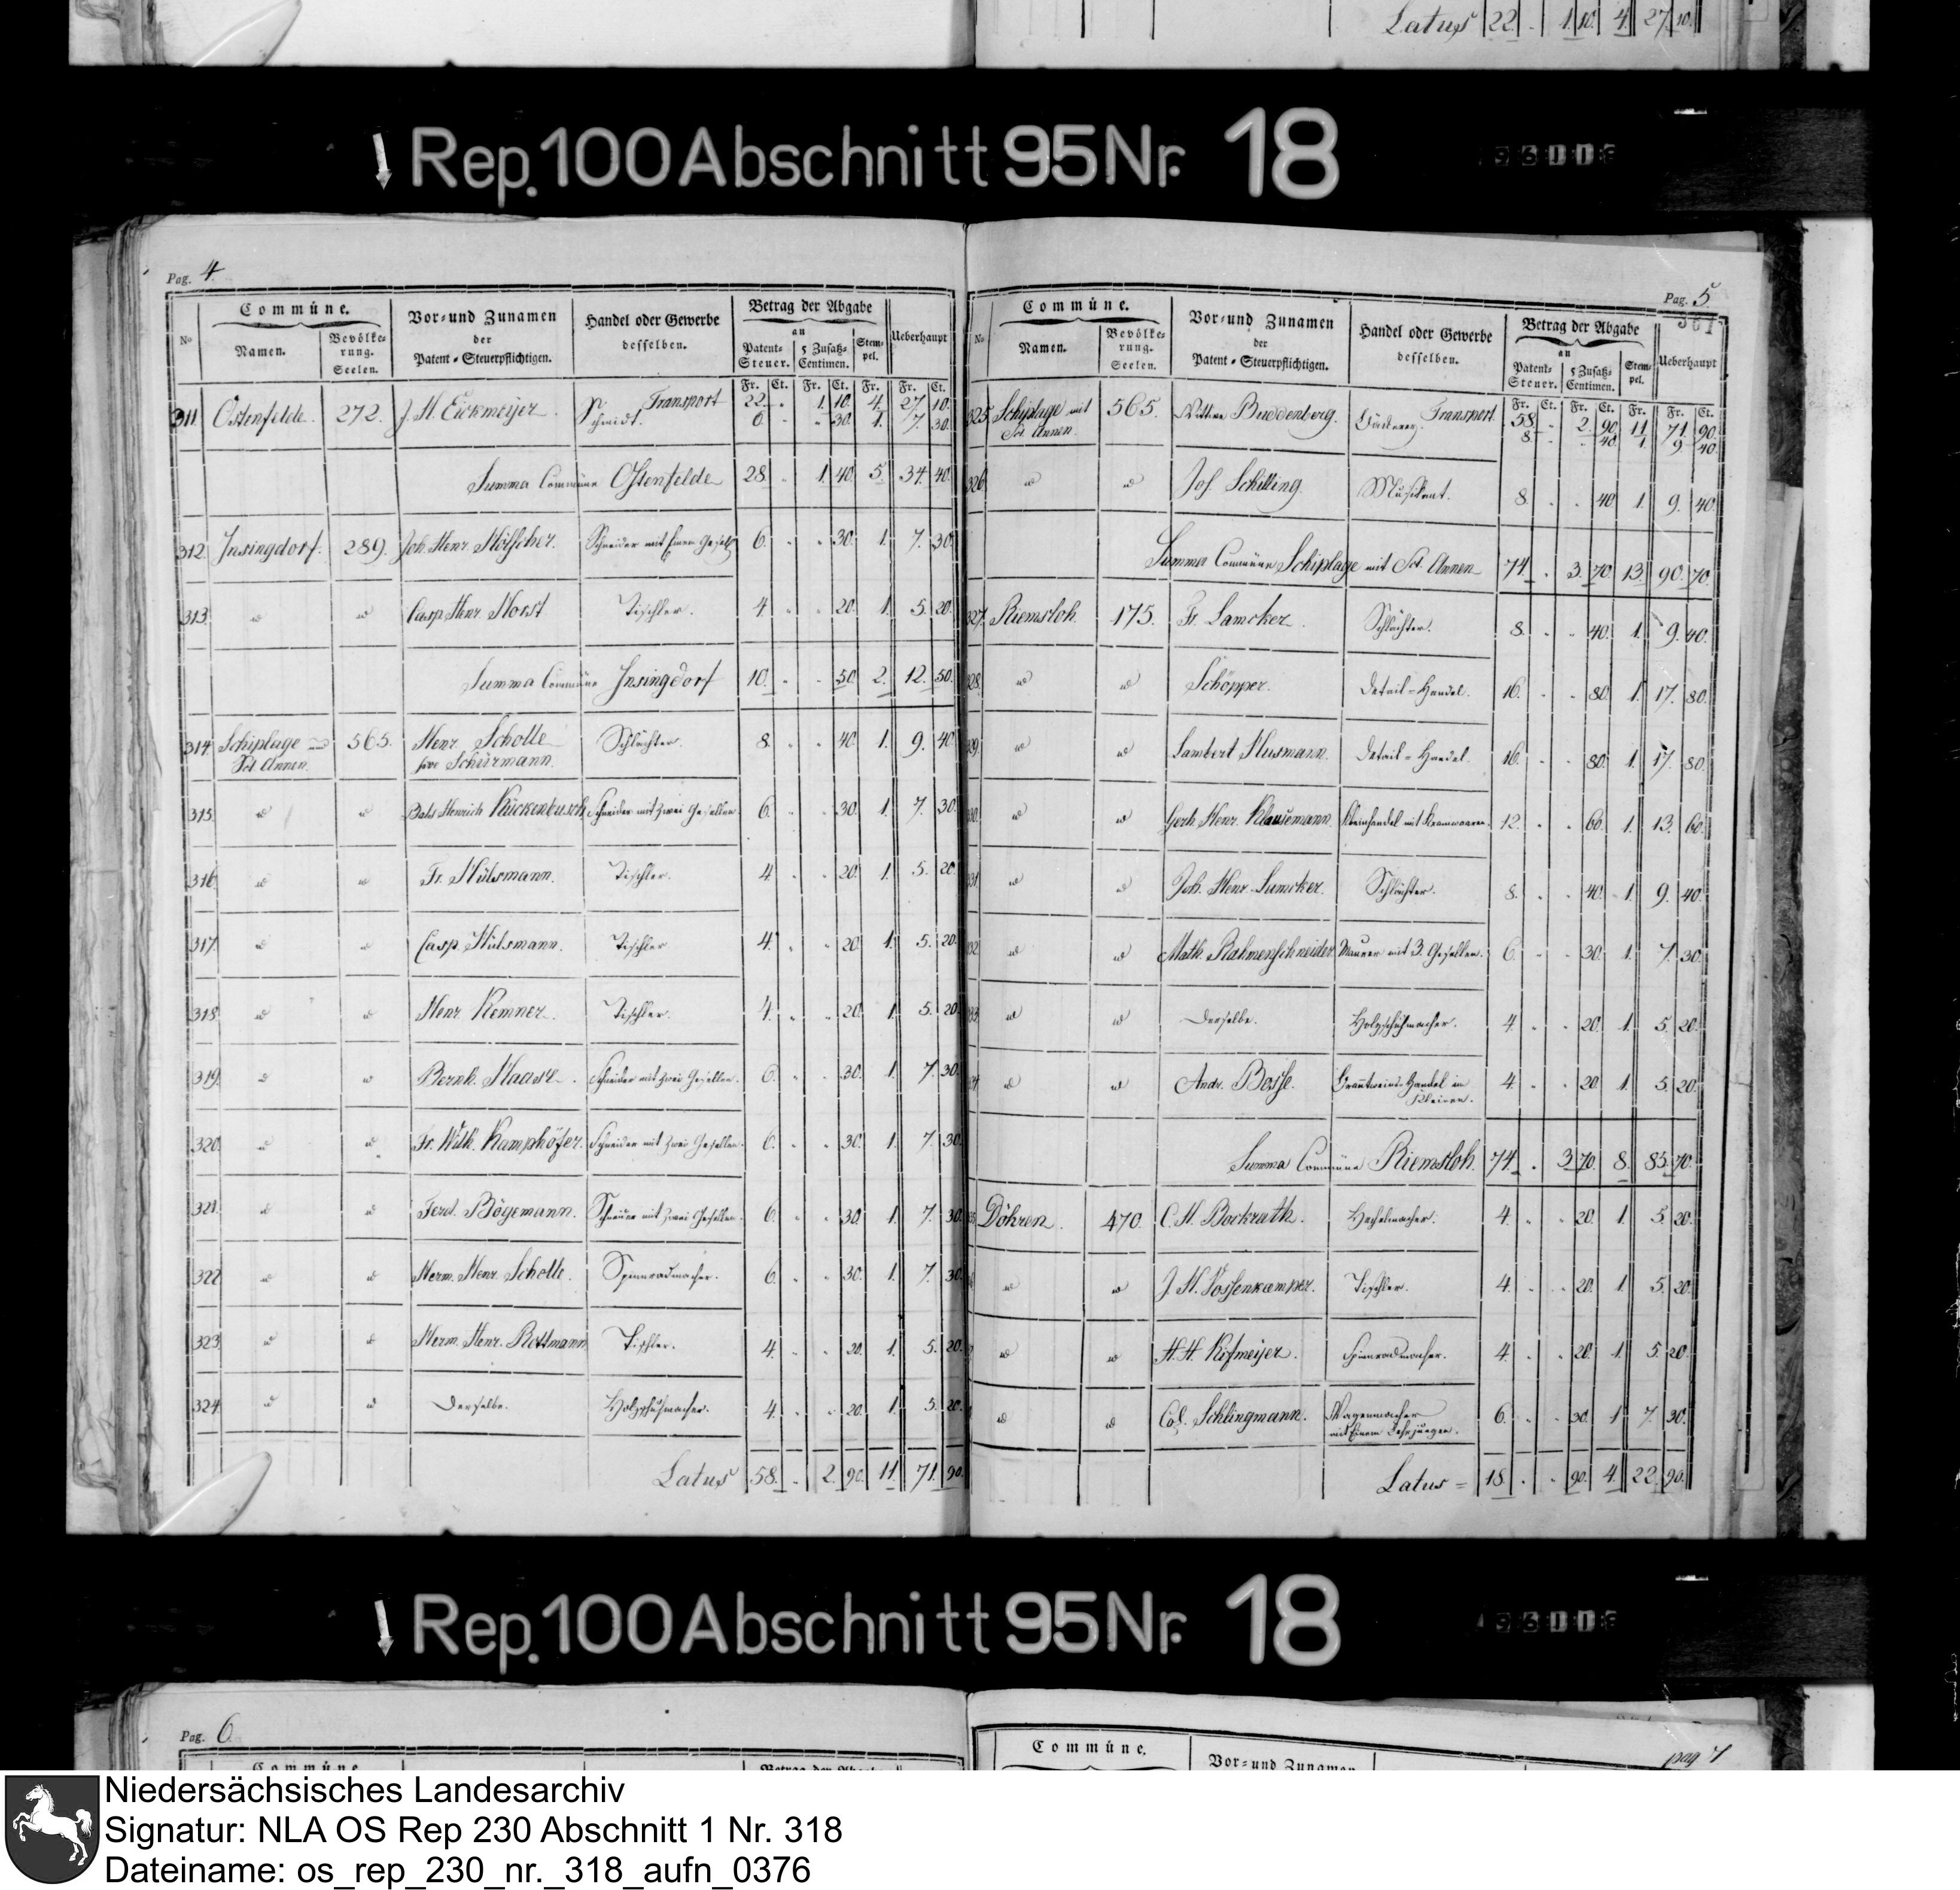 Latus 22. - 1. 10. 4. 27. 10.
Rep. 100 Abschnitt 95 Nr. 18
Pag. 4.
Commüne. Vor- und Zunamen der Patent-Steuerpflichtigen. Handel oder Gewerbe desselben. Betrag der Abgabe Ueberhaupt
No Namen. Bevölkerung. Seelen. an Patent-Steuer. 5 Zusatz-Centimen. Stempel.
Fr. Ct. Fr. Ct. Fr. Fr. Ct.
Transport 22. - 1. 10. 4. 27. 10.
311. Ostenfelde. 272. J. H. Eickmeijer. Schmidt. 6. - - 30. 1. 7. 30.
Summa Commüne Ostenfelde 28. - 1. 40. 5. 34. 40.
312. Insingdorf. 289. Joh. Henr. Hölscher. Schneider mit Einem Gesell 6. - - 30. 1. 7. 30.
313. " " Casp. Henr. Horst Tischler. 4. - - 20. 1. 5. 20.
Summa Commüne Insingdorf 10. - - 50. 2. 12. 50.
314. Schiplage 565. Henr. Scholle Schlächter. 8. - - 40. 1. 9. 40.
Sct. Annen. sive Schürmann.
315. " " Henrich Kückenbusch Schneider mit zwei Gesellen 6. - - 30. 1. 7. 30.
316. " " Fr. Hülsmann. Tischler. 4. - - 20. 1. 5. 20.
317. " " Casp. Hülsmann. Tischler 4. - - 20. 1. 5. 20.
318. " " Henr. Kemner. Tischler. 4. - - 20. 1. 5. 20.
319. " " Bernh. Haase. Schneider mit zwei Gesellen. 6. - - 30. 1. 7. 30.
320. " " Fr. Wilh. Kamphöfer. Schneider mit zwei Gesellen. 6. - - 30. 1. 7. 30.
321. " " Ferd. Bögemann. mit zwei Gesellen. 6. - - 30. 1. 7. 30.
322. " " Herm. Henr. Scholle. Spinnradmacher. 6. - - 30. 1. 7. 30.
323. " " Herm. Henr. Rottmann Tischler. 4. - - 20. 1. 5. 20.
324. " " Derselbe. Holzschuhmacher. 4. - - 20. 1. 5. 20.
Latus 58. - 2. 90. 11. 71. 90.
Pag. 5.
Commüne. Vor- und Zunamen der Patent-Steuerpflichtigen. Handel oder Gewerbe desselben. Betrag der Abgabe Ueberhaupt
No Namen. Bevölkerung. Seelen. an Patent-Steuer. 5 Zusatz-Centimen. Stempel.
Fr. Ct. Fr. Ct. Fr. Fr. Ct.
Transport 58. - 2. 90. 11. 71. 90.
325. Schiplage mit 565. Wittwe Buddenberg. 8. - - 40. 1. 9. 40.
Sct. Annen.
326. " " Jos. Schilling. Musikant. 8. - - 40. 1. 9. 40.
Summa Commüne Schiplage mit Sct. Annen 74. - 3. 70. 13. 90. 70.
327. Riemsloh. 175. Fr. Lamcker. Schlächter. 8. - - 40. 1. 9. 40.
28. " " Schöpper. Detail-Handel. 16. - - 80. 1. 17. 80.
29. " " Lambert Husmann. Detail-Handel. 16. - - 80. 1. 17. 80.
30. " " Gerh. Henr. Klausemann. Kleinhandel mit Kramwaaren. 12. - - 60. 1. 13. 60.
31. " " Joh. Henr. Lumcker. Schlächter. 8. - - 40. 1. 9. 40.
32. " " Math. Rahmenschneider Maurer mit 3. Gesellen. 6. - - 30. 1. 7. 30.
33. " " Derselbe. Holzschuhmacher. 4. - - 20. 1. 5. 20.
" " Andr. Bosse. Branntweins-Handel im 4. - - 20. 1. 5. 20.
Kleinen.
Summa Commüne Riemsloh. 74. - 3. 70. 8. 85. 70.
Döhren. 470. C. H. Bockrath. Hechelmacher. 4. - - 20. 1. 5. 20.
" " J. H. Vossenkämper. Tischler. 4. - - 20. 1. 5. 20.
" " H. H. Kifmeijer. Spinnradmacher. 4. - - 20. 1. 5. 20.
" " Col. Schlingmann. Wagenmacher 6. - - 30. 1. 7. 30.
mit Einem Lehrjungen.
Latus = 18. - - 90. 4. 22. 90.
Rep. 100 Abschnitt 95 Nr. 18
Pag. 6
Commüne. Betrag der Abgabe
Commüne. Vor- und Zunamen
pag 7
Niedersächsisches Landesarchiv
Signatur: NLA OS Rep 230 Abschnitt 1 Nr. 318
Dateiname: os_rep_230_nr._318_aufn_0376